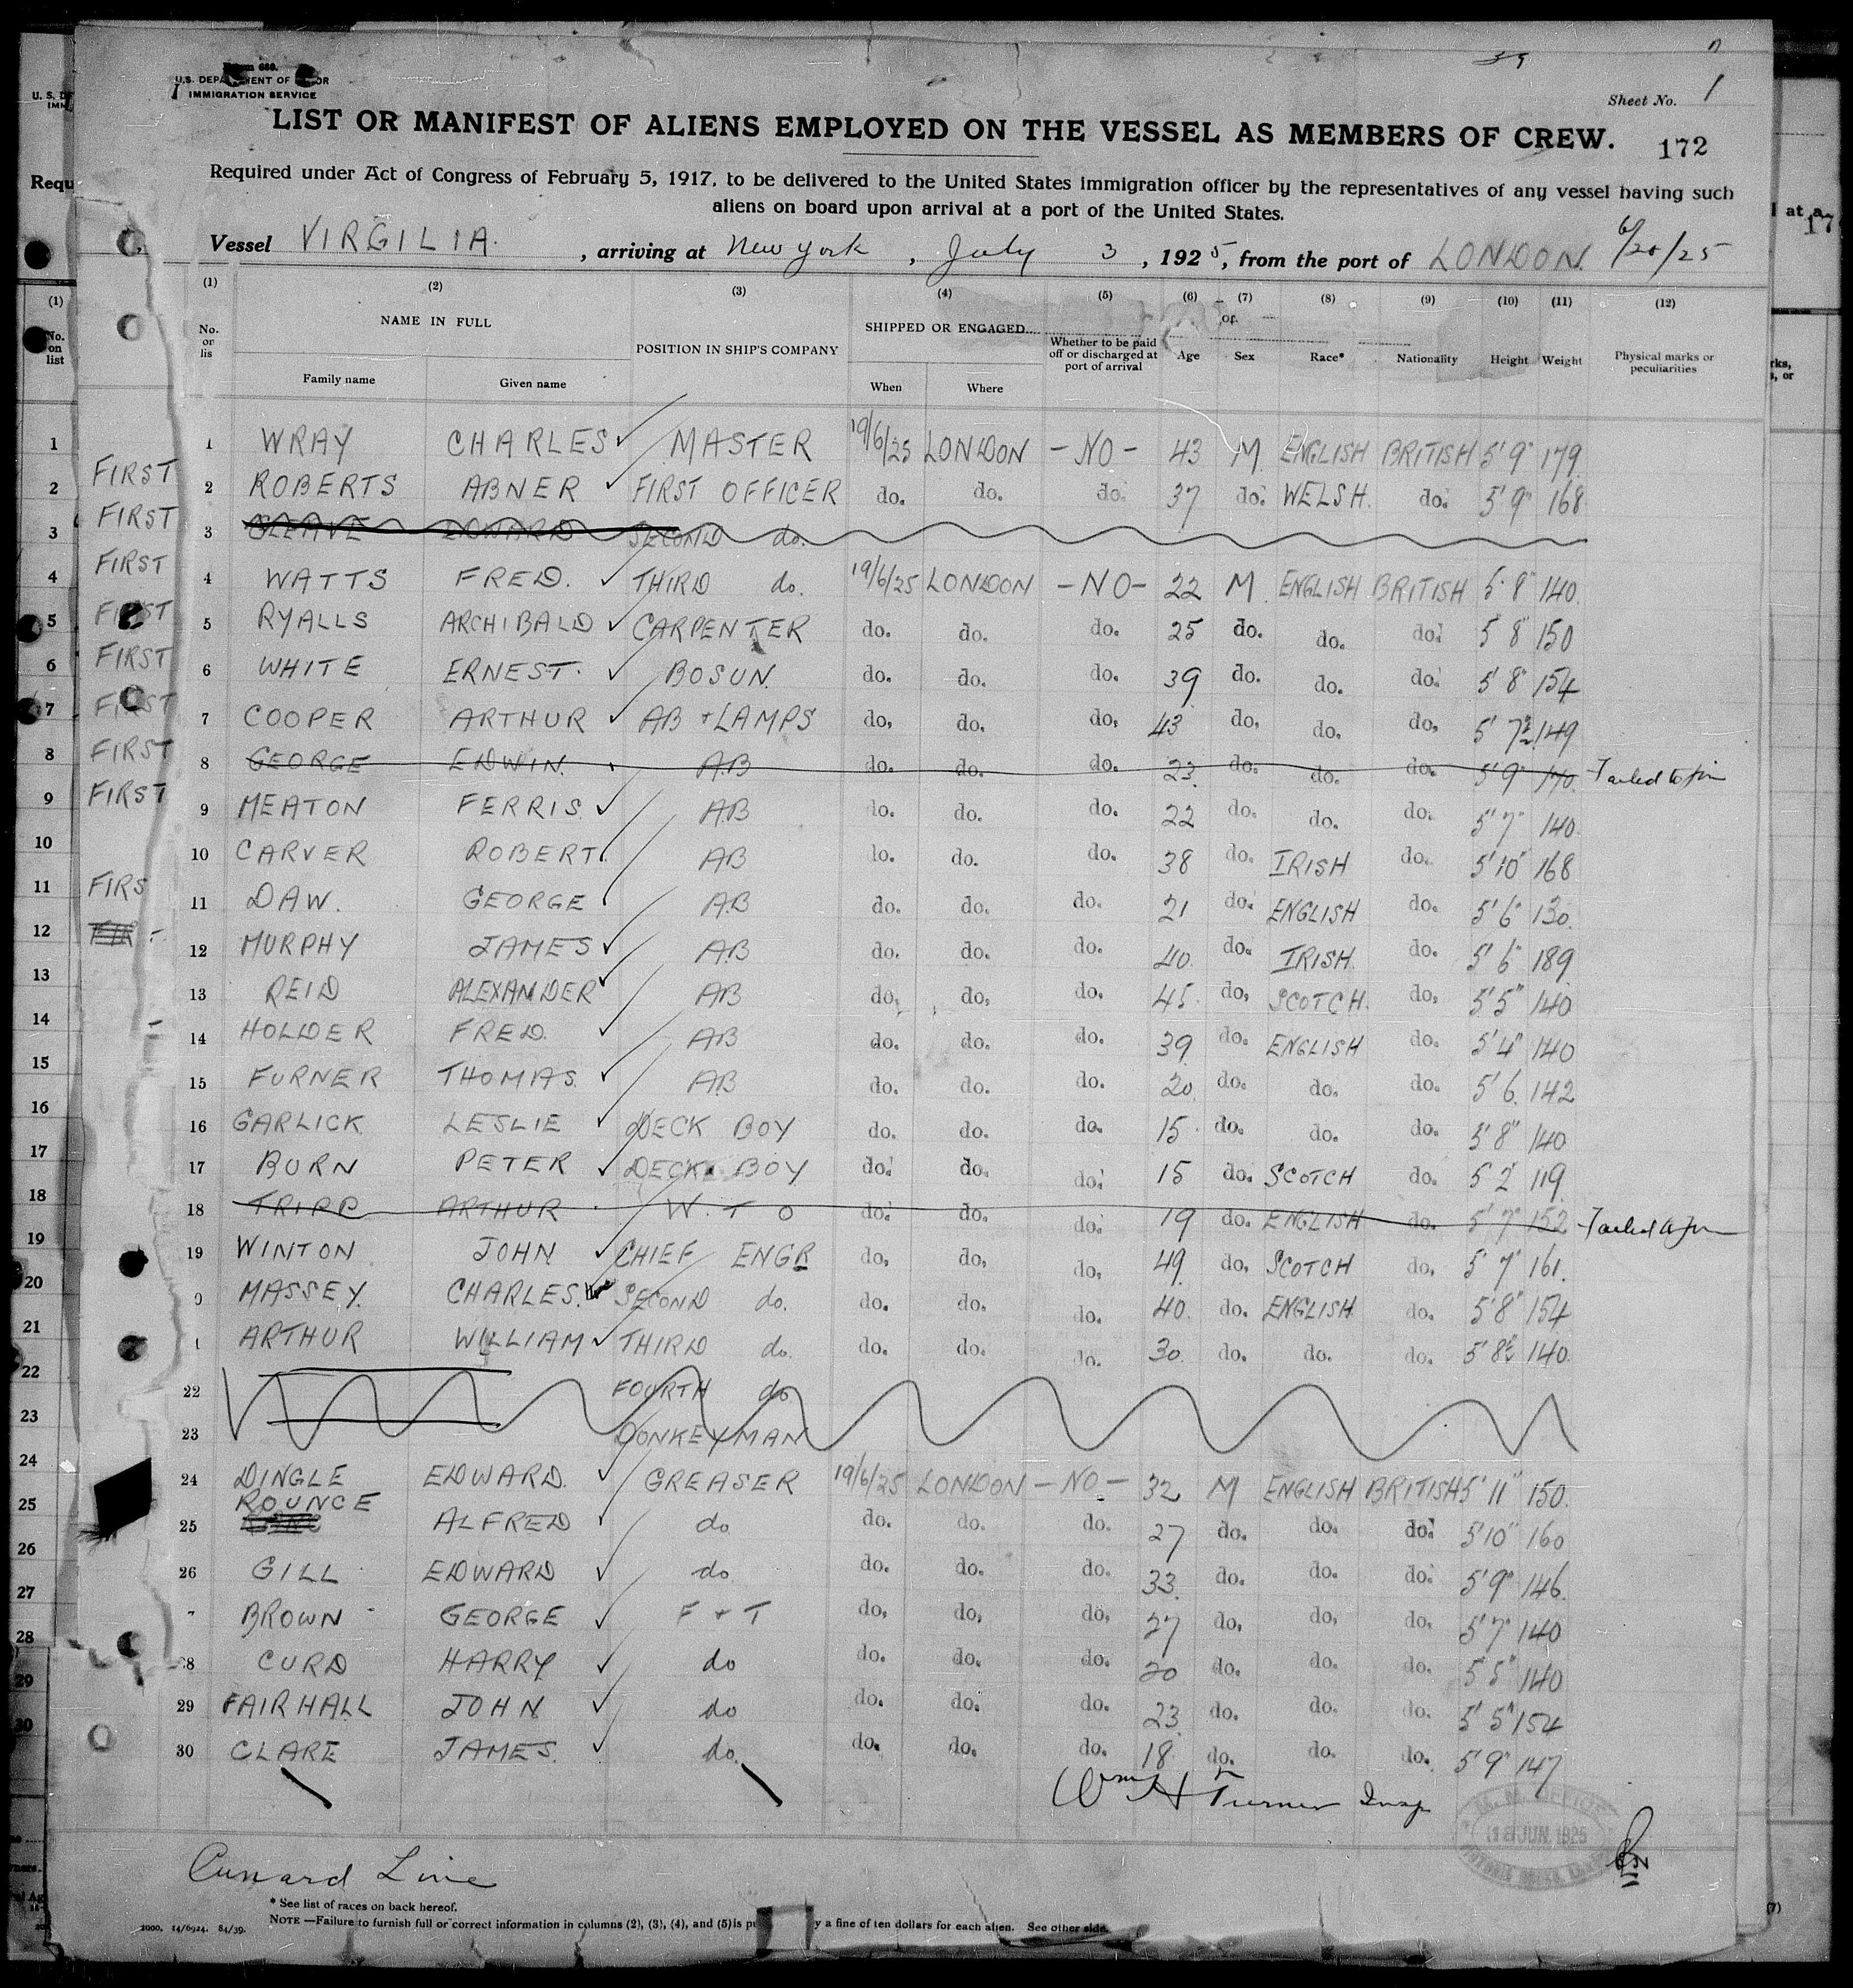 Form 689.
U.S. DEPARTMENT OF LABOR
IMMIGRATION SERVICE
Sheet No. 1
LIST OR MANIFEST OF ALIENS EMPLOYED ON THE VESSEL AS MEMBERS OF CREW.
172
Required under Act of Congress of February 5, 1917, to be delivered to the United States immigration officer by the representatives of any vessel having such
aliens on board upon arrival at a port of the United States.
Vessel VIRGILIA. , arriving at New York , July 3 , 1925, from the port of LONDON. 6/20/25
(1) (2) (3) (4) (5) (6) (7) (8) (9) (10) (11) (12)
No. on lis NAME IN FULL POSITION IN SHIP'S COMPANY SHIPPED OR ENGAGED Whether to be paid off or discharged at port of arrival Age Sex Race* Nationality Height Weight Physical marks or peculiarities
Family name Given name When Where
1 WRAY CHARLES MASTER 19/6/25 LONDON - NO - 43 M. ENGLISH BRITISH 5'9" 179
2 ROBERTS ABNER FIRST OFFICER do. do. do. 37 do. WELSH. do. 5'9" 168
3 GLEAVE EDWARD SECOND do.
4 WATTS FRED. THIRD do. 19/6/25 LONDON - NO - 22 M. ENGLISH BRITISH 5'8" 140
5 RYALLS ARCHIBALD CARPENTER do. do. do. 25 do. do. do. 5'8" 150
6 WHITE ERNEST. BOSUN. do. do. do. 39 do. do. do. 5'8" 154
7 COOPER ARTHUR AB + LAMPS do. do. do. 43 do. do. do. 5'7½ 149
8 GEORGE EDWIN. AB do. do. do. 23 do. do. do. 5'9" 170. Failed to join
9 MEATON FERRIS. AB do. do. do. 22 do. do. do. 5'7" 140
10 CARVER ROBERT. AB do. do. do. 38 do. IRISH do. 5'10" 168
11 DAW. GEORGE AB do. do. do. 21 do. ENGLISH do. 5'6" 130
12 MURPHY JAMES AB do. do. do. 40 do. IRISH do. 5'6" 189
13 REID ALEXANDER AB do. do. do. 45 do. SCOTCH. do. 5'5" 140
14 HOLDER FRED. AB do. do. do. 39 do. ENGLISH do. 5'4" 140
15 FURNER THOMAS. AB do. do. do. 20 do. do. do. 5'6. 142
16 GARLICK LESLIE DECK BOY do. do. do. 15 do. do. do. 5'8" 140
17 BURN PETER DECK BOY do. do. do. 15 do. SCOTCH do. 5 2' 119
18 TRIPP ARTHUR W.T O do. do. do. 19 do. ENGLISH do. 5'7" 152 Failed to Join
19 WINTON JOHN CHIEF ENGR do. do. do. 49 do. SCOTCH do. 5'7" 161.
0 MASSEY. CHARLES. SECOND do. do. do. do. 40 do. ENGLISH do. 5'8" 154
1 ARTHUR WILLIAM THIRD do. do. do. do. 30 do. do. do. 5'8½ 140
22 FOURTH do
23 DONKEYMAN
24 DINGLE EDWARD. GREASER 19/6/25 LONDON - NO - 32 M ENGLISH BRITISH 5'11" 150.
ROUNCE
25 ALFRED do do. do. do. 27 do. do. do. 5'10" 160
26 GILL EDWARD do do. do. do. 33 do. do. do. 5'9" 146
7 BROWN GEORGE F + T do. do. do. 27 do. do. do. 5'7" 140
28 CURD HARRY do do. do. do. 20 do. do. do. 5'5" 140
29 FAIRHALL JOHN do do. do. do. 23 do. do. do. 5'5" 154
30 CLARE JAMES. do. do. do. do. 18 do. do. do. 5'9" 147
Wm H Turner Insp
18 JUN. 1925
Cunard Line
* See list of races on back hereof.
NOTE —Failure to furnish full or correct information in columns (2), (3), (4), and (5) is y a fine of ten dollars for each alien. See other side.
2000. 14/6924. 84/39.
FIRST
FIRST
FIRST
FIRST
FIRST
FIRST
FIRST
FIRST
FIRS